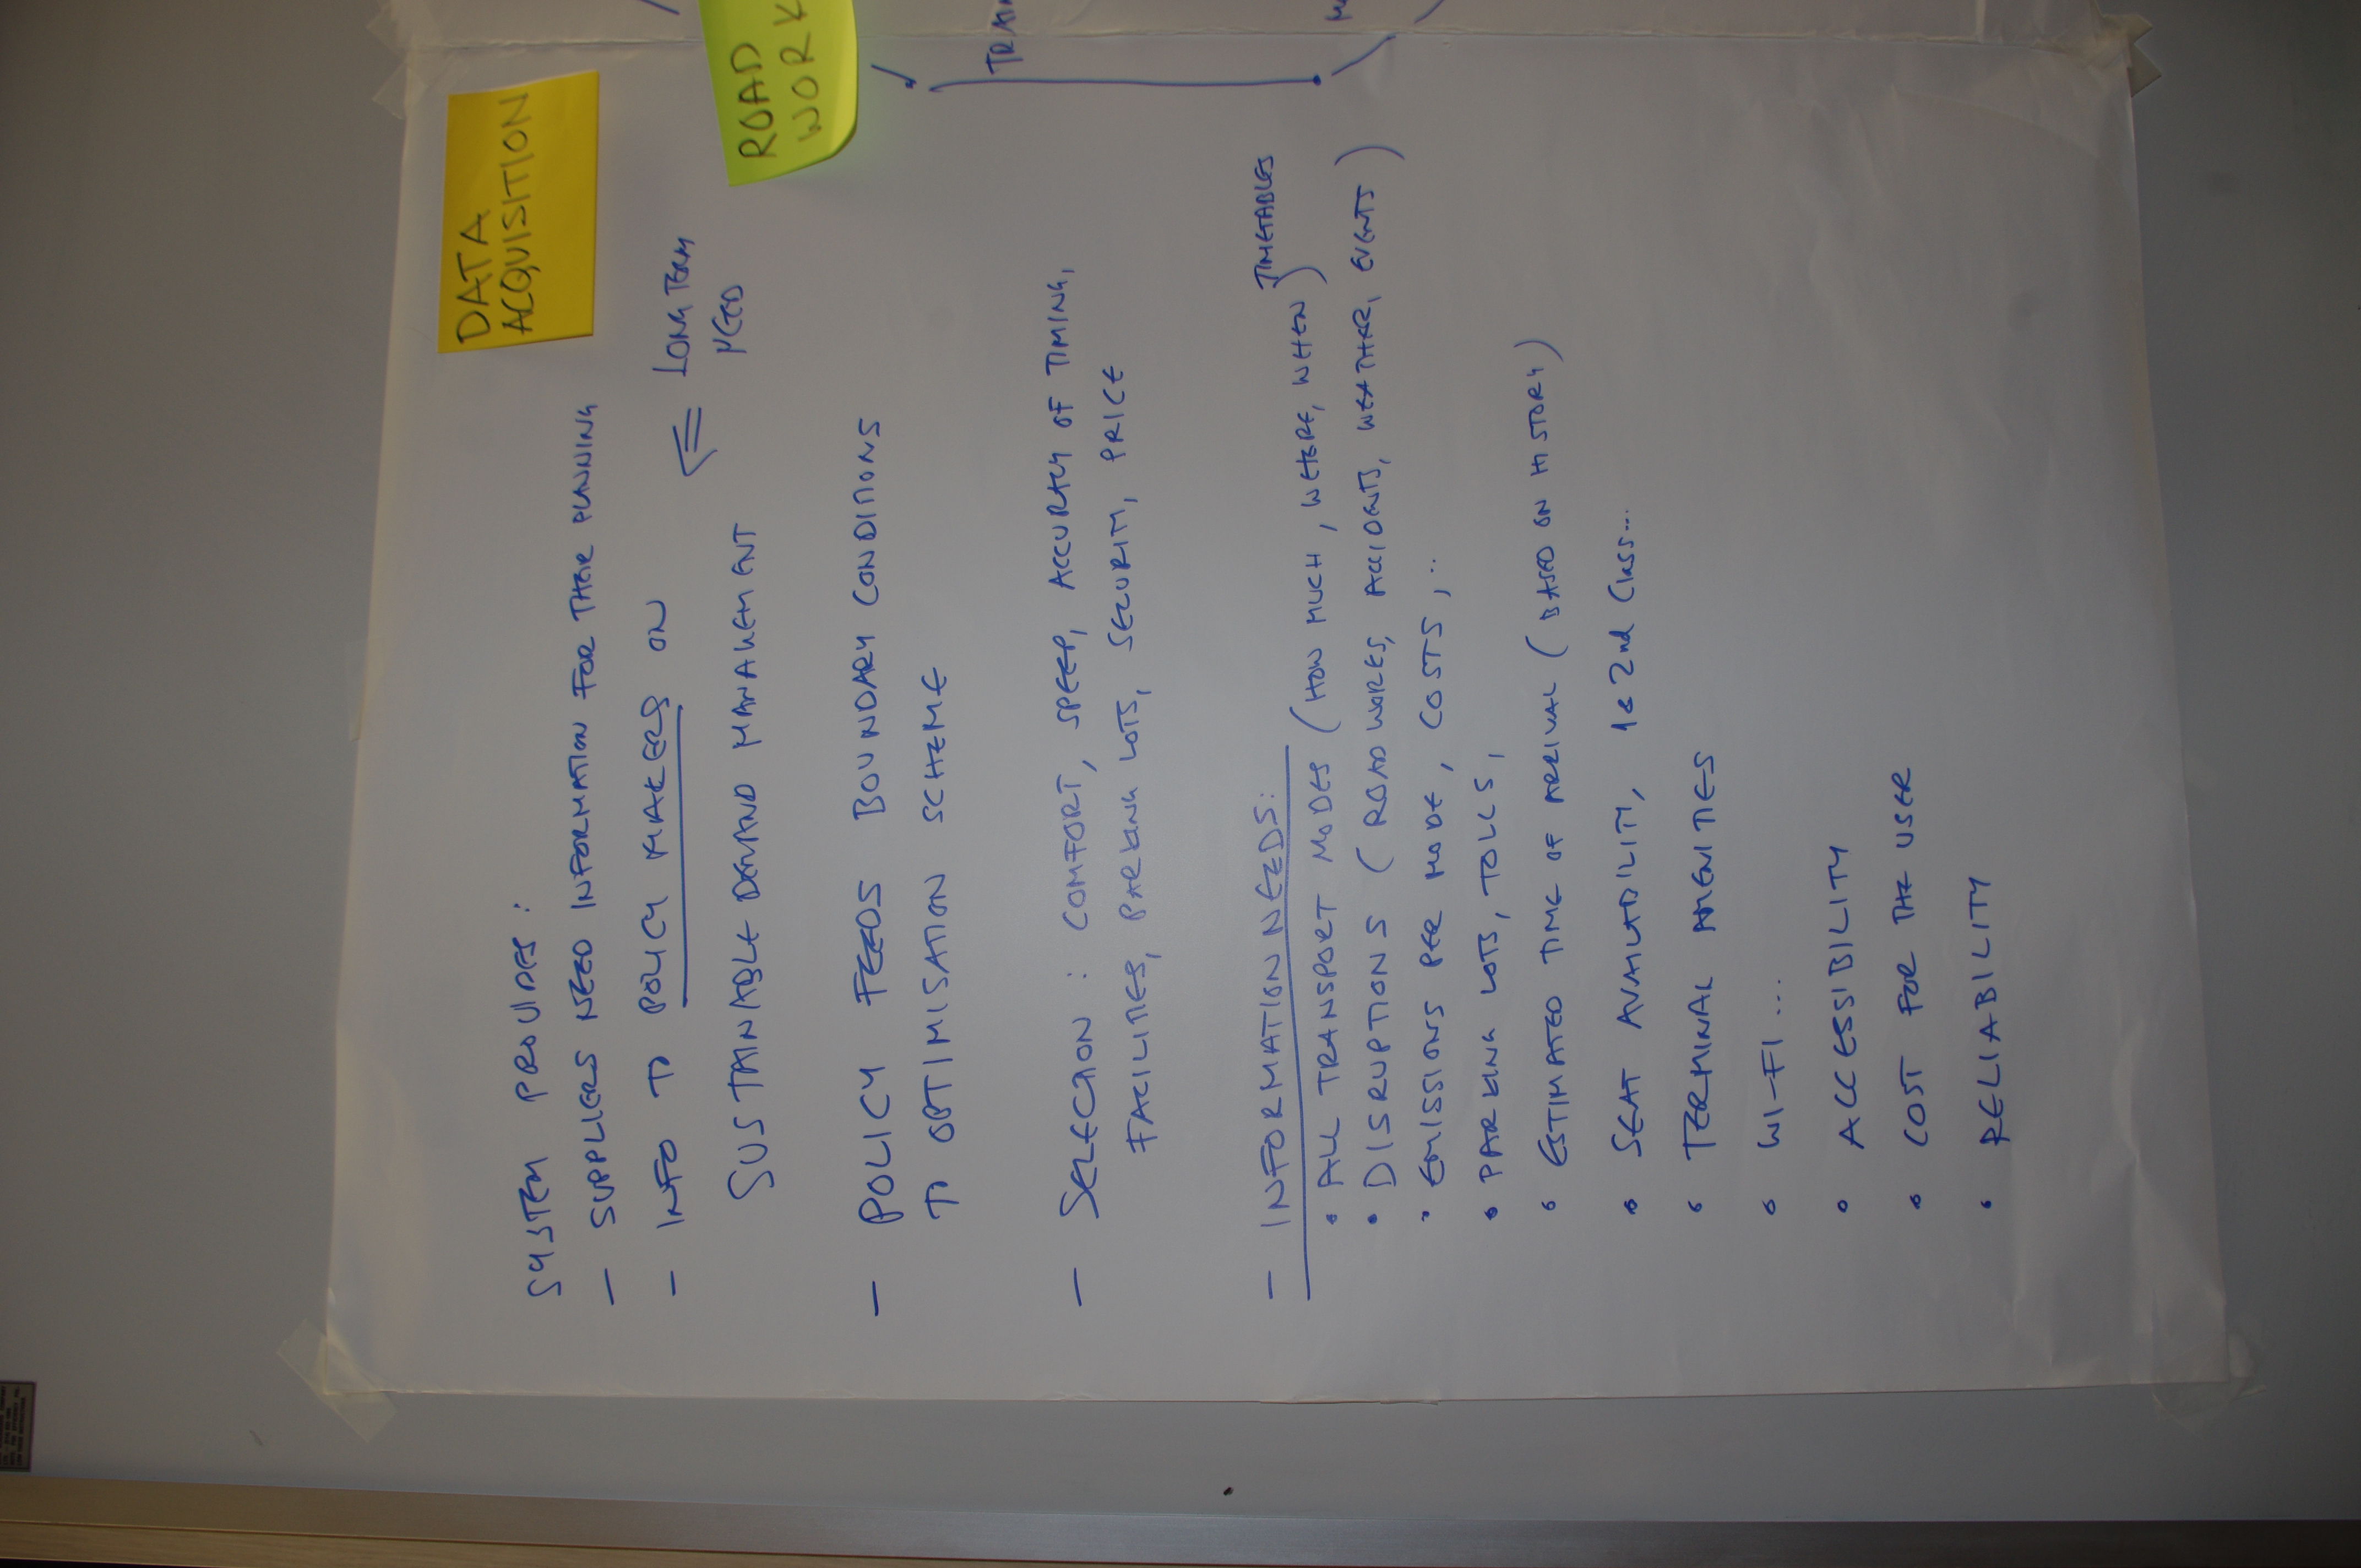 DATA
ACQUISITION
ROAD
WORK
SYSTEM PROVIDES:
- SUPPLIERS NEED INFORMATION FOR THEIR PLANNING
- INFO TO POLICY MAKERS ON
SUSTAINABLE DEMAND MANAGEMENT
⇐ LONG TERM
NEED
- POLICY FEEDS BOUNDARY CONDITIONS
TO OPTIMISATION SCHEME
- SELECTION: COMFORT, SPEED, ACCURACY OF TIMING,
FACILITIES, PARKING LOTS, SECURITY, PRICE
- INFORMATION NEEDS:
• ALL TRANSPORT MODES (HOW MUCH, WHERE, WHEN) TIMETABLES
• DISRUPTIONS (ROADWORKS, ACCIDENTS, WEATHER, EVENTS)
• EMISSIONS PER MODE, COSTS, ..
• PARKING LOTS, TOLLS,
• ESTIMATED TIME OF ARRIVAL (BASED ON HISTORY)
• SEAT AVAILABILITY, 1 & 2nd Class...
• TERMINAL AMENITIES
• WI-FI ...
• ACCESSIBILITY
• COST FOR THE USER
• RELIABILITY